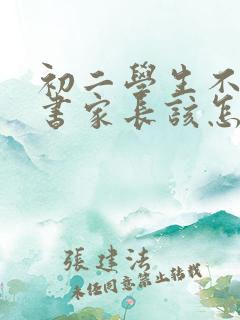 初二學生不
書家長該怎
張建法
未经同意禁止转载